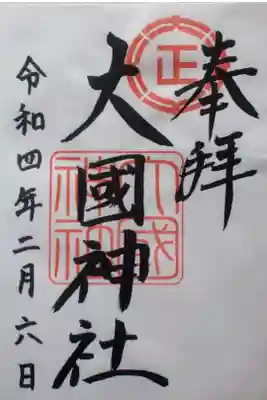 奉拝
正
大國神社
大國神社
令和四年二月六日